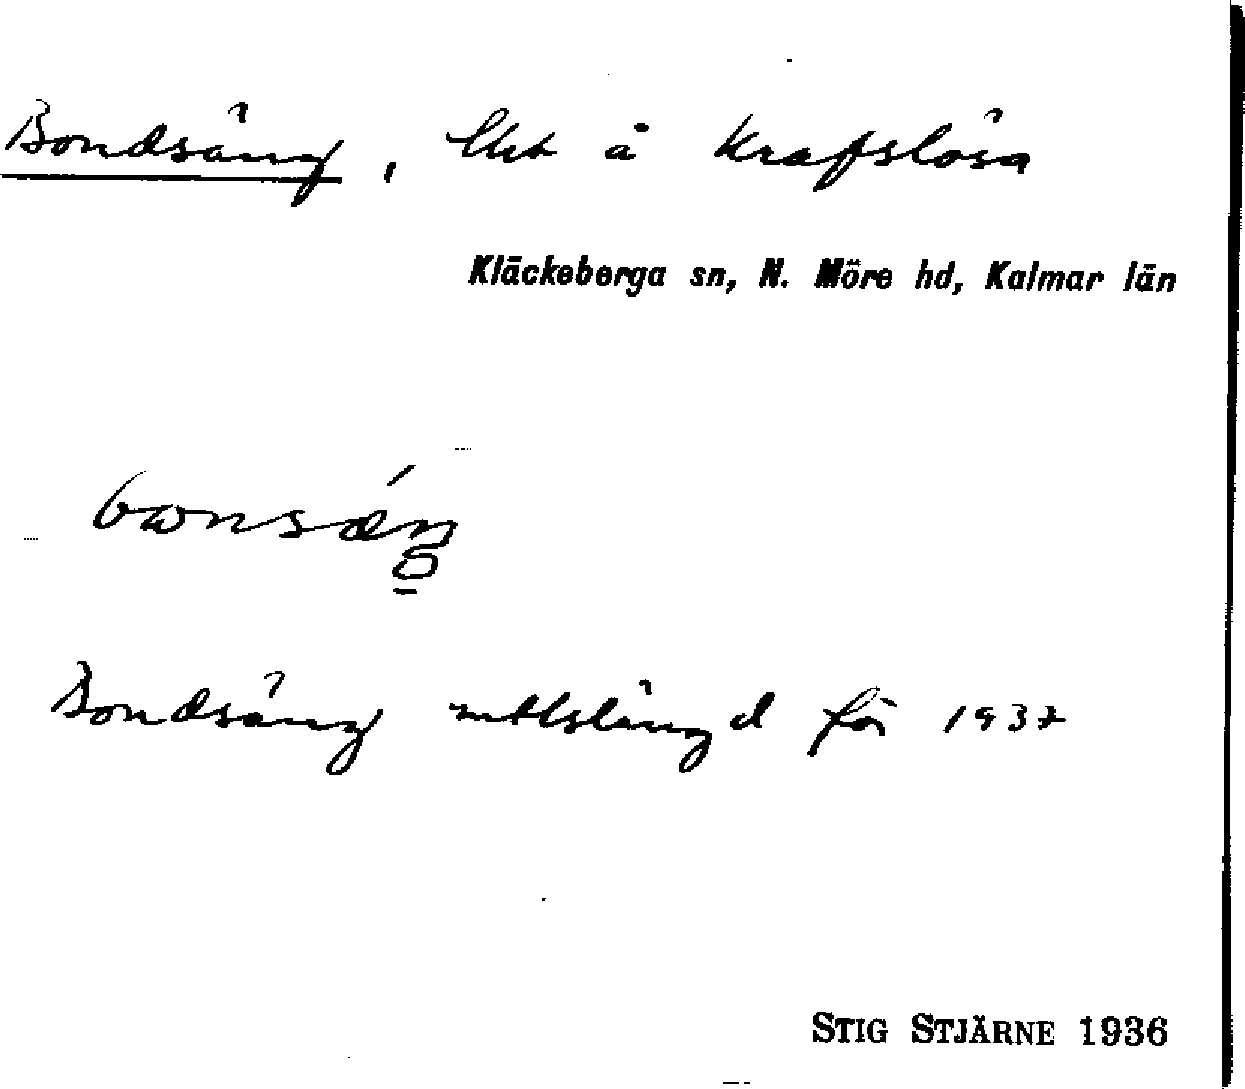 Bondsäng, lht å Krafslösa
Kläckeberga sn, N. Möre hd, Kalmar län
Bondsäng mtlslängd för 1937
STIG STJÄRNE 1936